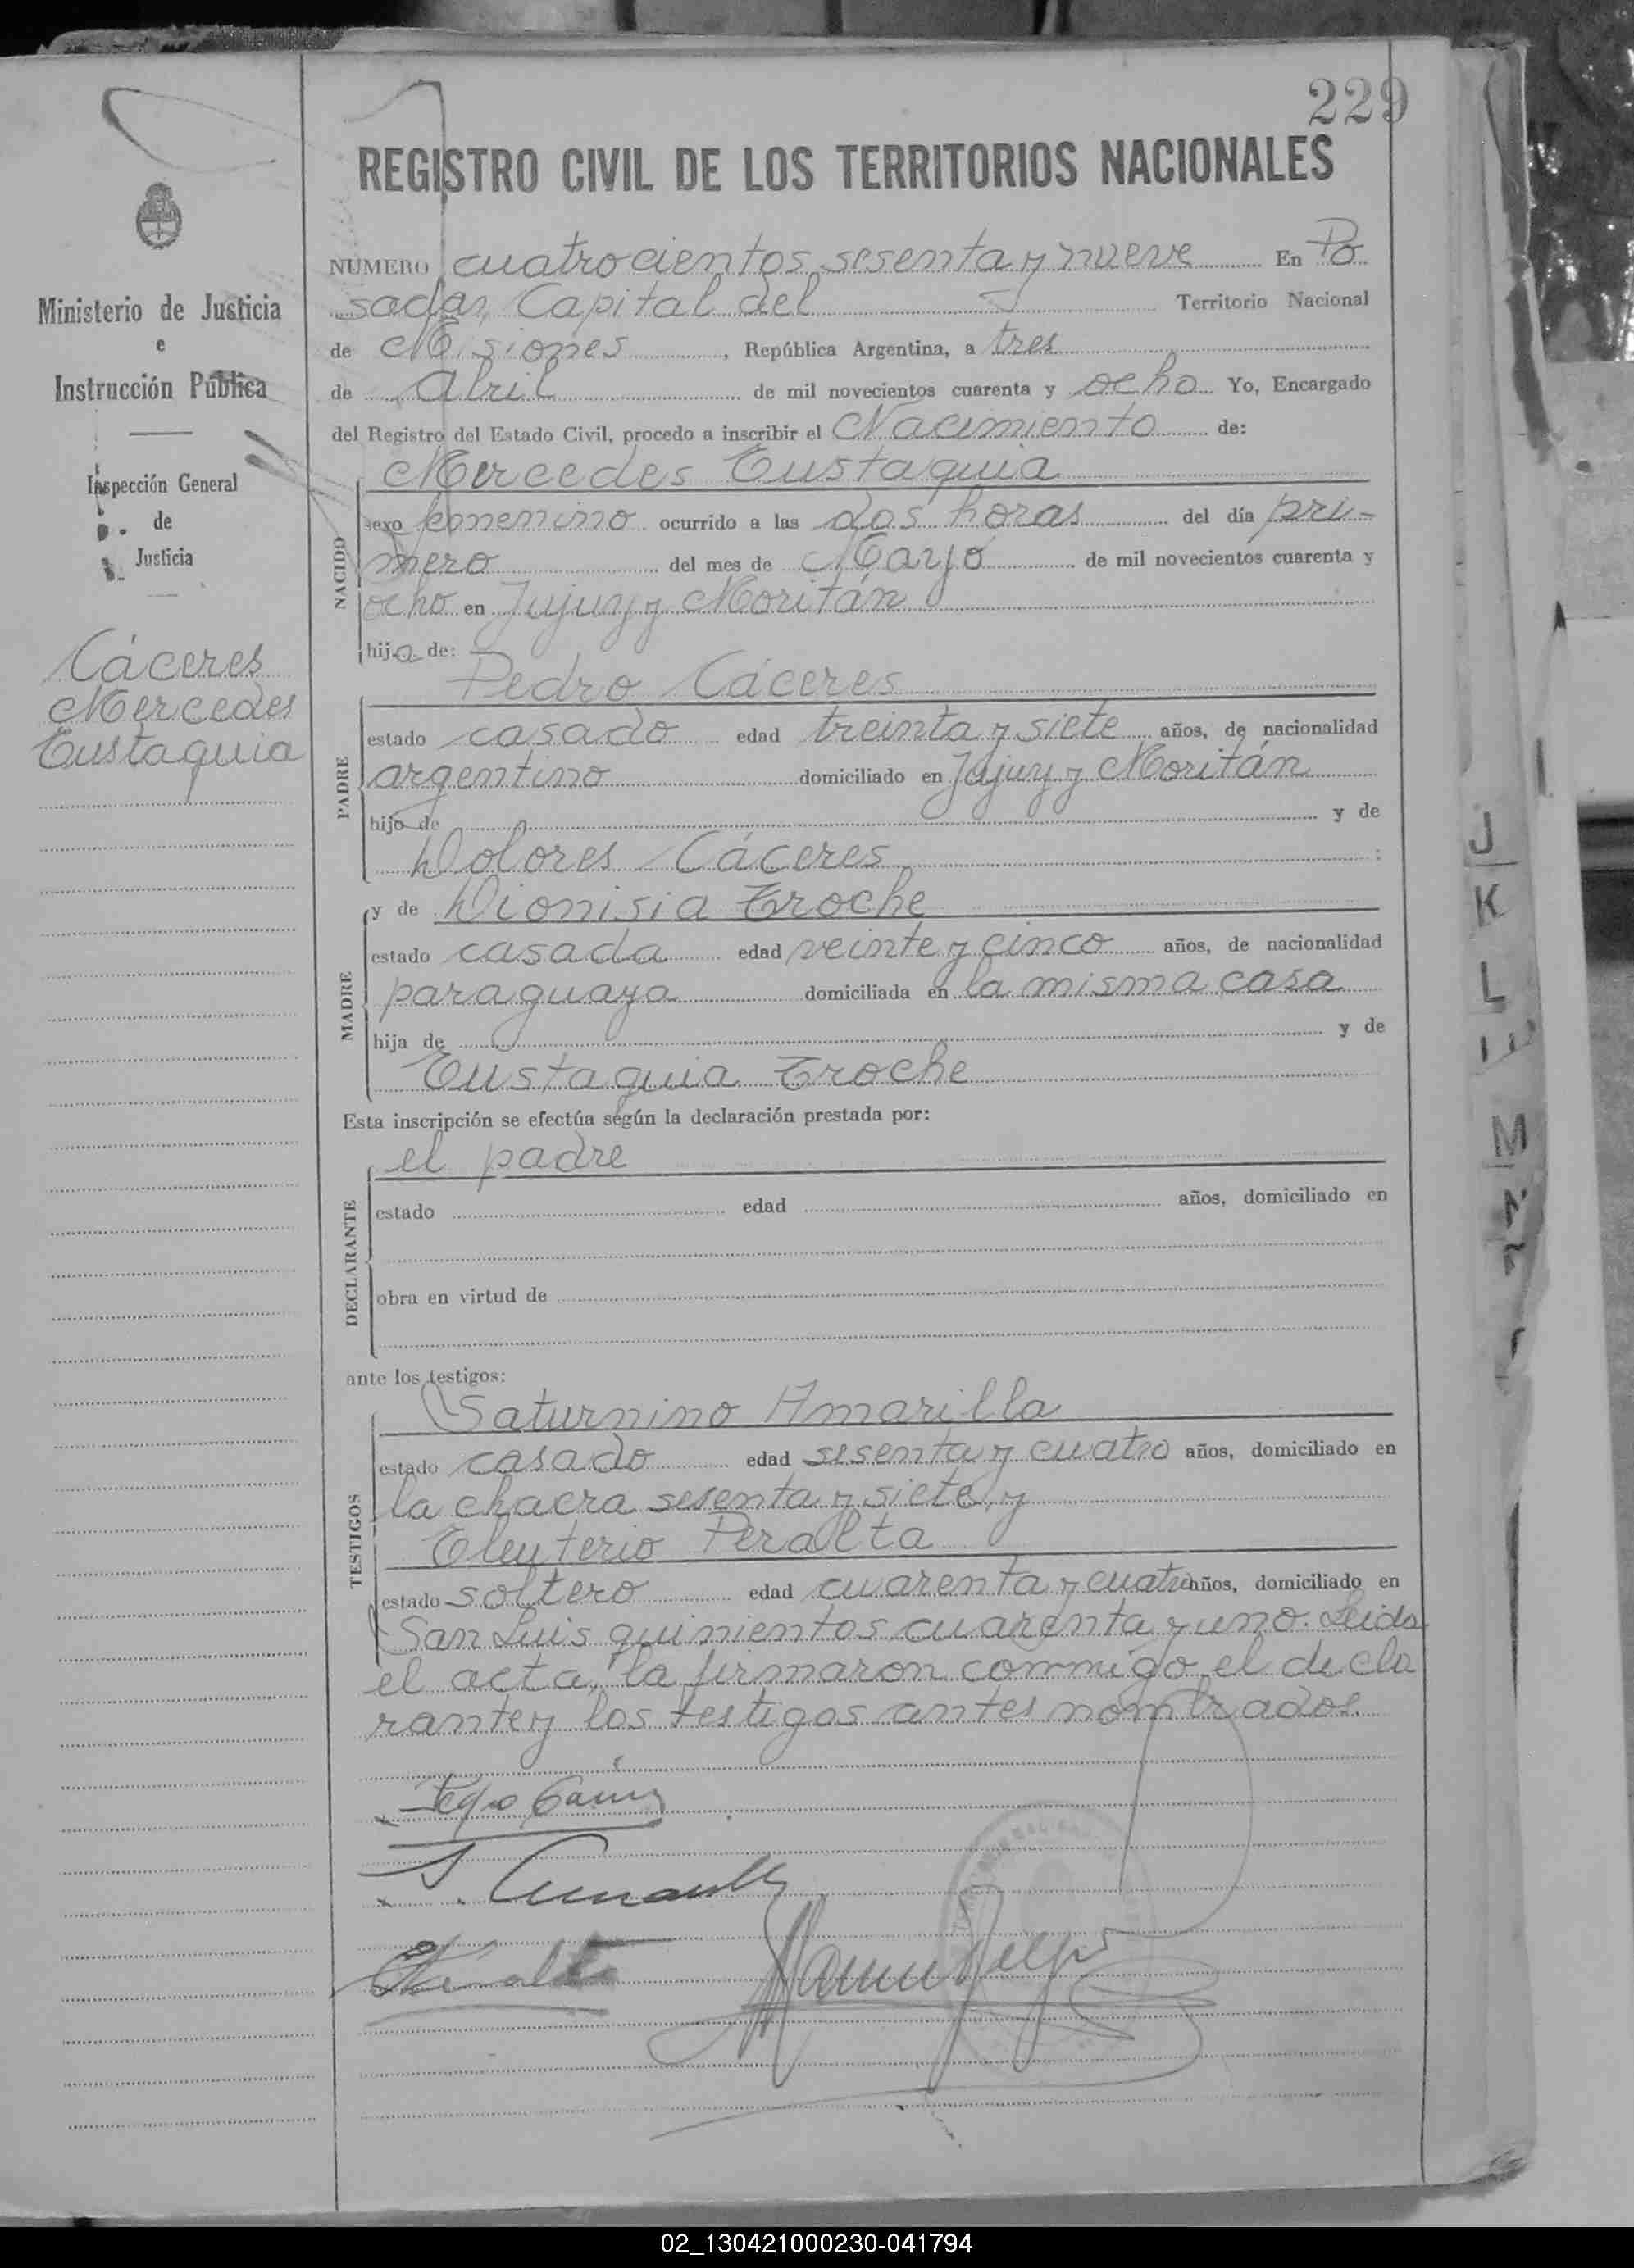 229
REGISTRO CIVIL DE LOS TERRITORIOS NACIONALES
Ministerio de Justicia
e
Instrucción Pública
Inspección General
de
Justicia
Cáceres
Mercedes
Eustaquia
NUMERO cuatrocientos sesenta y nueve En Po
sadas, Capital del Territorio Nacional
de Misiones, República Argentina, a tres
de Abril de mil novecientos cuarenta y ocho Yo, Encargado
del Registro del Estado Civil, procedo a inscribir el Nacimiento de:
Mercedes Eustaquia
NACIDO
sexo femenino ocurrido a las dos horas del día pri-
mero del mes de Mayo de mil novecientos cuarenta y
ocho en Jujuy y Moritán
hija de:
Pedro Cáceres
PADRE
estado casado edad treinta y siete años, de nacionalidad
argentino domiciliado en Jujuy y Moritán
hijo de y de
Dolores Cáceres
y de Dionisia Troche
MADRE
estado casada edad veinte y cinco años, de nacionalidad
paraguaya domiciliada en la misma casa
hija de y de
Eustaquia Troche
Esta inscripción se efectúa según la declaración prestada por:
el padre
DECLARANTE
estado edad años, domiciliado en
obra en virtud de
ante los testigos:
Saturnino Amarilla
TESTIGOS
estado casado edad sesenta y cuatro años, domiciliado en
la chacra sesenta y siete, y
Eleuterio Peralta
estado soltero edad cuarenta y cuatro años, domiciliado en
San Luis quinientos cuarenta y uno. Leida
el acta, la firmaron conmigo el decla
rante y los testigos antes nombrados.
J
K
L
M
N
02_130421000230-041794